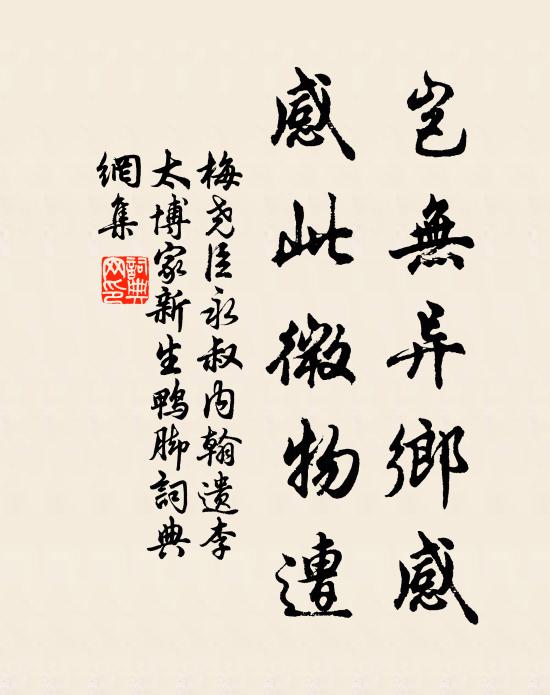 岂無异鄉感
感此微物遭
梅尧臣永叔内翰遗李
太博家新生鸭脚詞典
網集
詞典網印